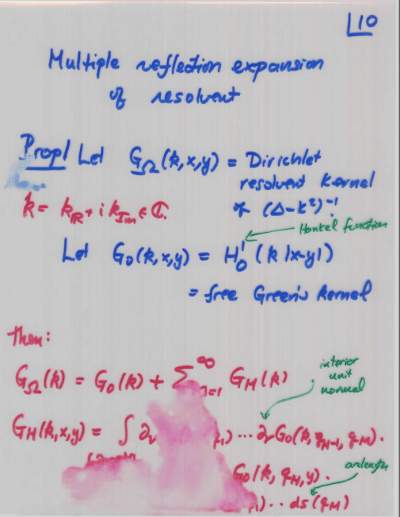 L10
Multiple reflection expansion
of resolvent
Prop| Let G_Ω(k,x,y) = Dirichlet
resolvent kernel
of (Δ-k²)⁻¹
k = k_R + i k_Im ∈ ℂ.
Hankel function
Let G₀(k,x,y) = H₀¹(k|x-y|)
= free Green's kernel
then:
G_Ω(k) = G₀(k) + Σ^∞ =1 G_M(k).
interior
unit
normal
G_M(k,x,y) = ∫ ∂ν ) ... ∂ν G₀(k, q_{M-1}, q_M).
G₀(k, q_M, y).
arclength
) .. ds(q_M)